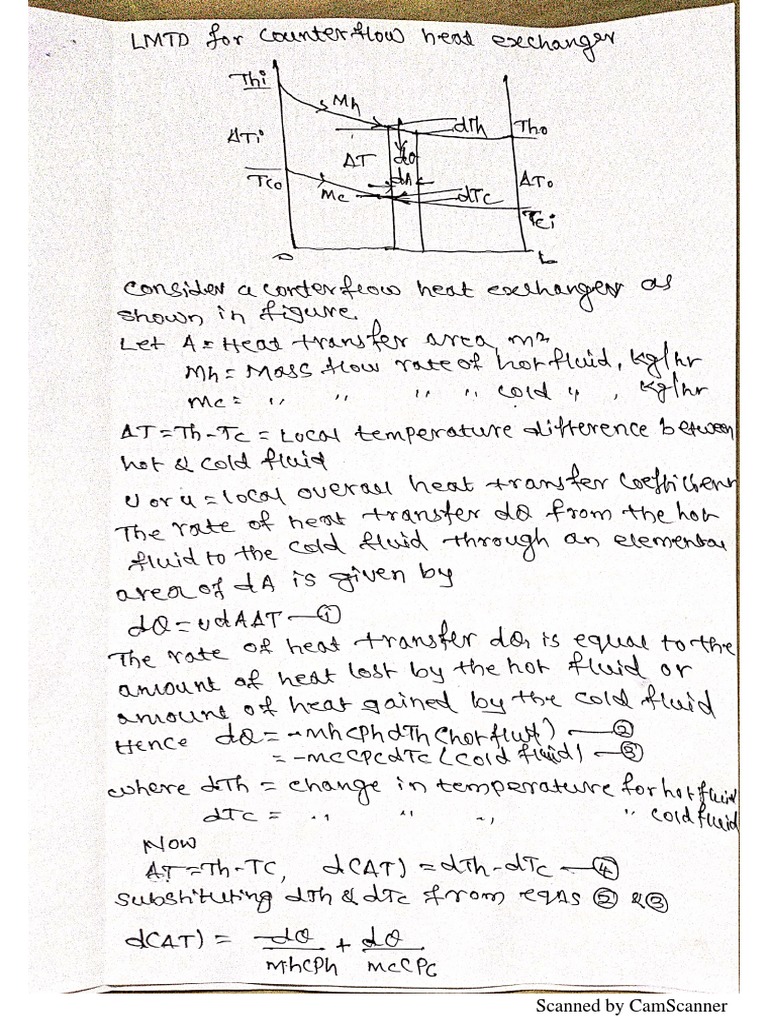 LMTD for counterflow heat exchanger
Thi
Mh
dTh
Tho
ΔTi
ΔT
dQ
dA
ΔTo
Tco
Mc
dTc
Tci
O
L
Consider a conterflow heat exchanger as
shown in figure.
Let A = Heat transfer area m²
Mh = Mass flow rate of hot fluid, kg/hr
Mc = " " " " cold " , kg/hr
ΔT = Th-Tc = Local temperature difference between
hot & cold fluid
U or u = local overall heat transfer Coefficient
The rate of heat transfer dQ from the hot
fluid to the cold fluid through an elemental
area of dA is given by
dQ = udAΔT — ①
The rate of heat transfer dQ, is equal to the
amount of heat lost by the hot fluid or
amount of heat gained by the cold fluid
Hence dQ = -MhCPhdTh (hot fluid) — ②
= -McCPcdTc (cold fluid) — ③
where dTh = change in temperature for hot fluid
dTc = " " " " cold fluid
Now
ΔT = Th-Tc, d(ΔT) = dTh-dTc — ④
Substituting dTh & dTc from eqns ② & ③
d(ΔT) = -dQ/MhCPh + dQ/McCPc
Scanned by CamScanner